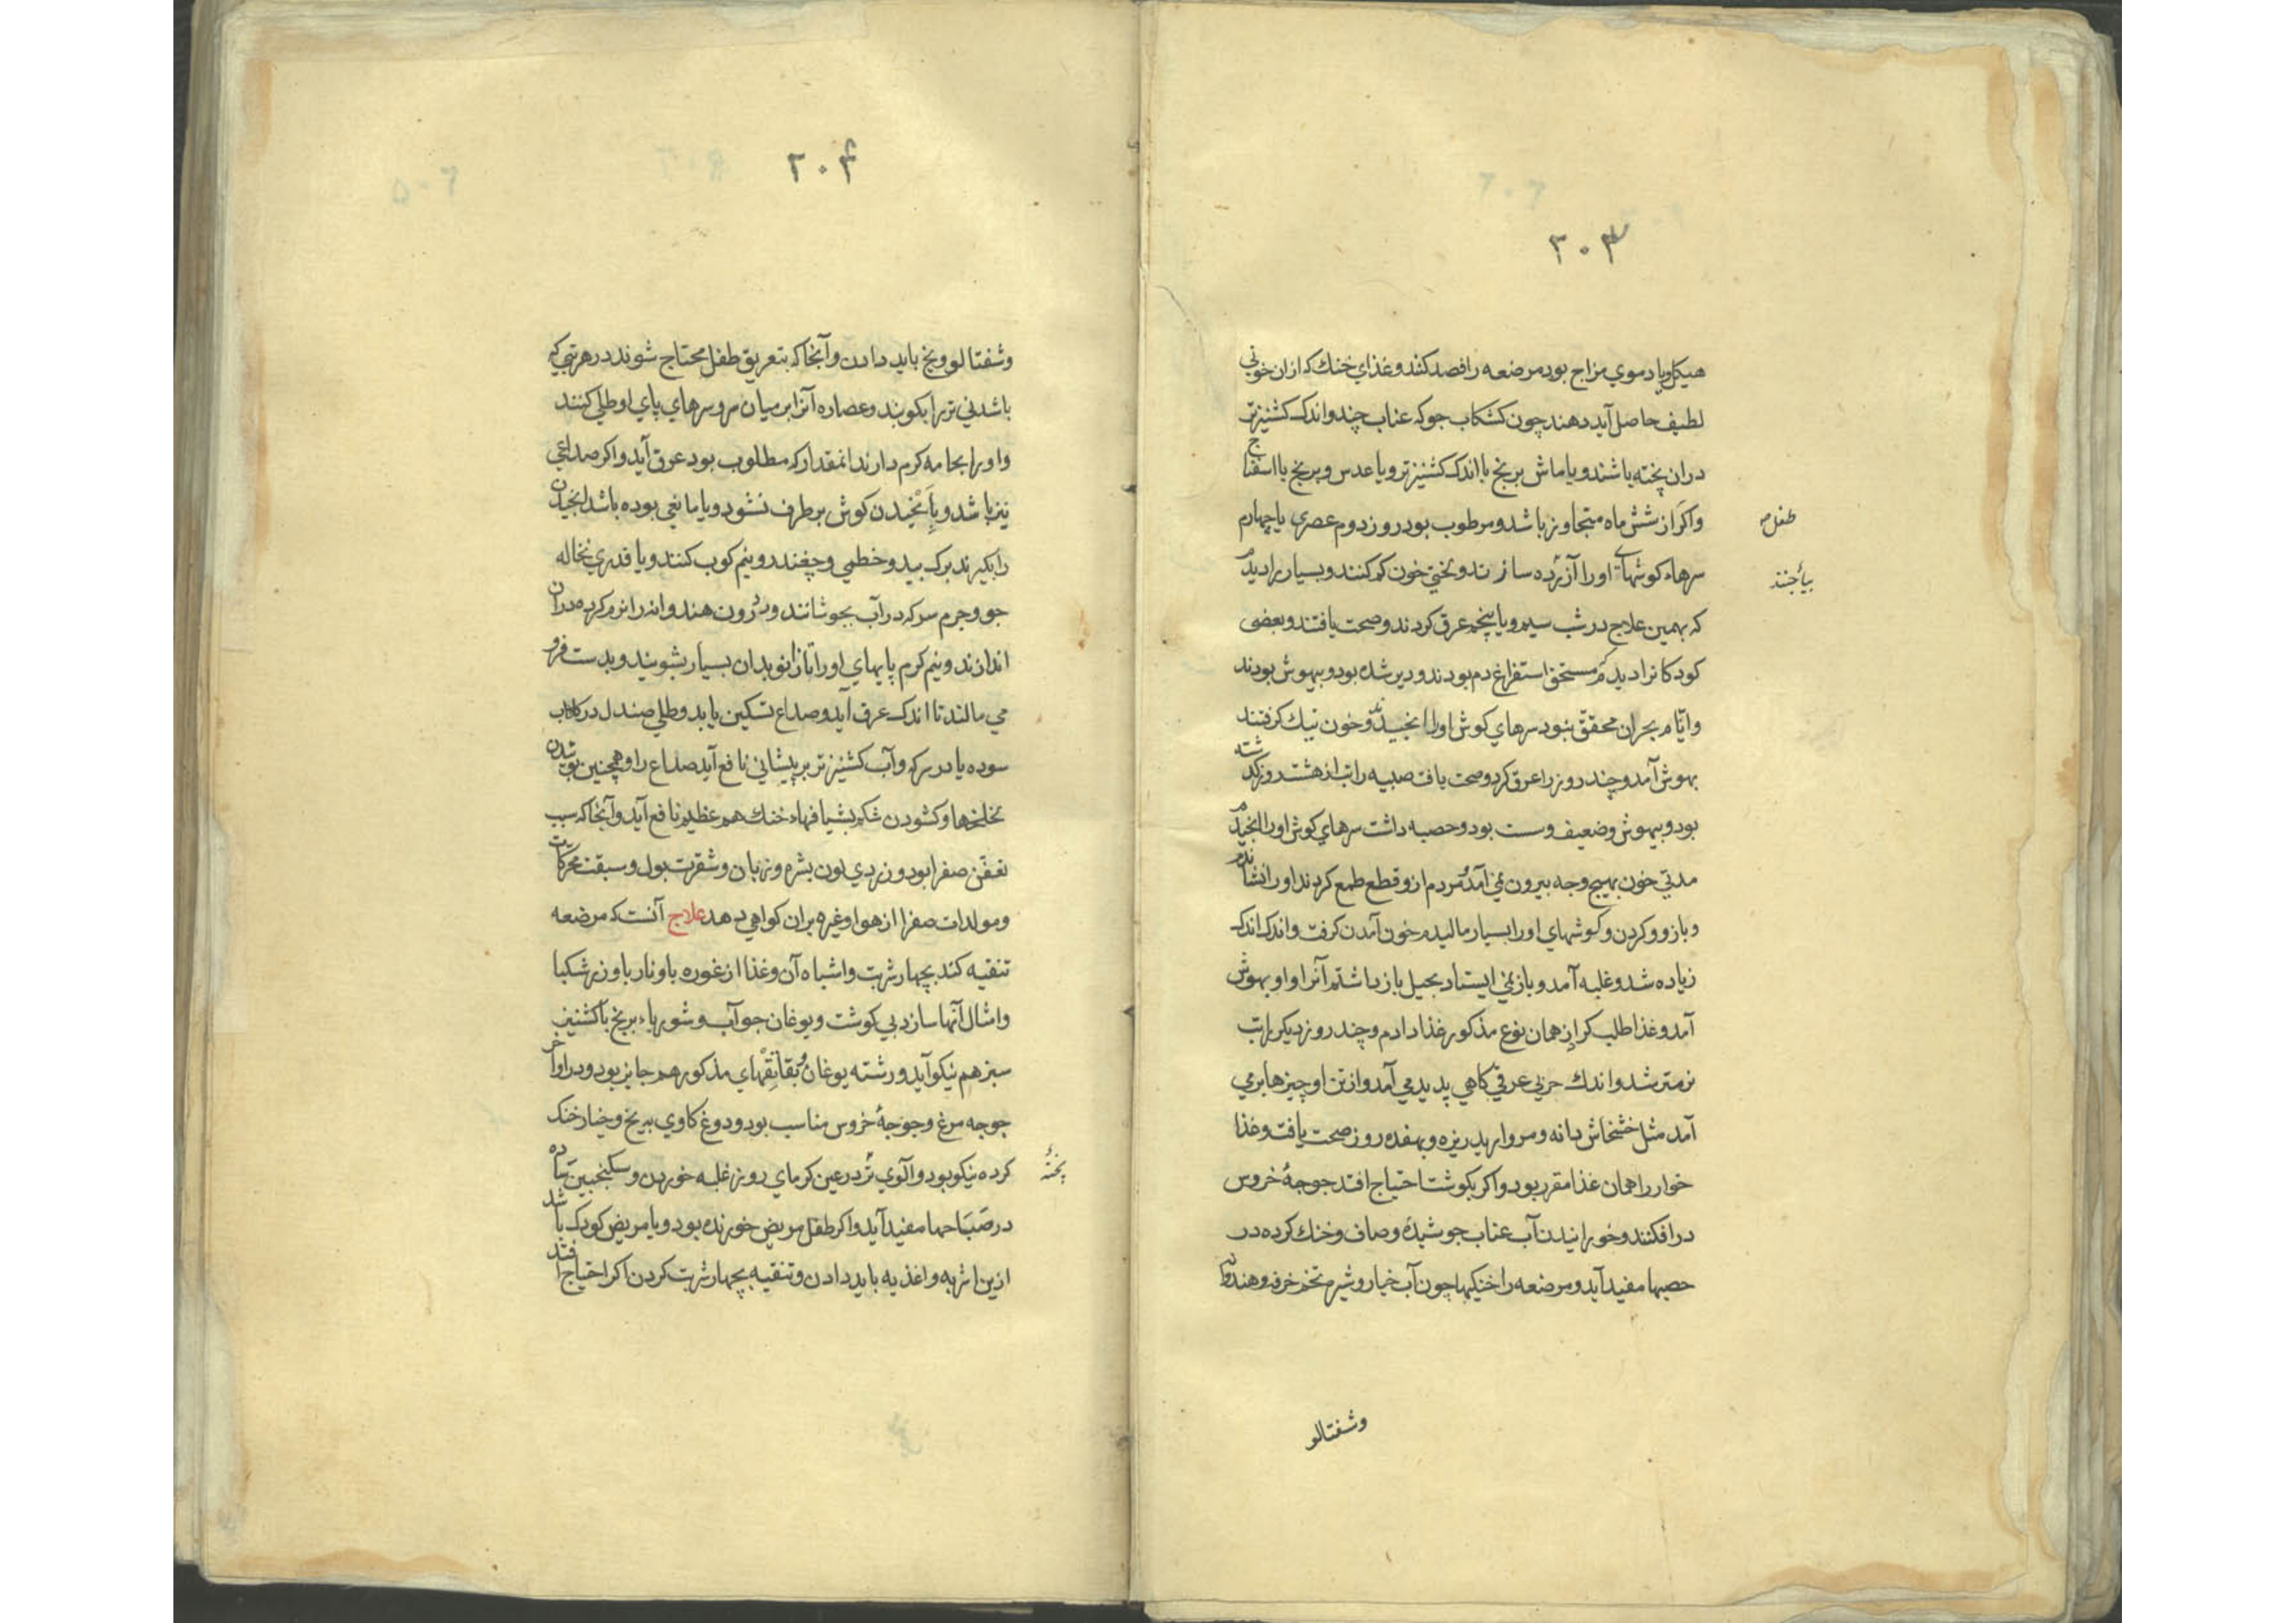 ۲۰۳
هیکل ویا دموی مزاج بود مرضعه را فصد کنند و غذای خنك که ازان خونی
لطیف حاصل آید دهند چون کشکاب جو که عناب چند و اندک کشنیز تر
دران پخته باشند و یا ماش برنج با اندک کشنیز تر و یا عدس و برنج با اسفناج
و اکر از شش ماه متجاوز باشد و مرطوب بود روز دوم عصری یا چهارم
طفل
سرهاء کوشهای اورا آزرده سازند و لختی خون کم کنند و بسیار را دیدم
بیاجنند
که بهمین علاج در شب سیم و یا پنجم عرق کردند و صحت یافتند و بعضی
کودکانرا دیدم که مستحق استفراغ دم بودند و دیر شده بود و بیهوش بودند
و ایّام بحران محقق نبود سرهای کوش اورا انجیدند و خون نیك کرفتند
بهوش آمد و چند روز را عرق کرد و صحت یافت صبیه را تب از هشت روز کذشته
بود و بیهوش و ضعیف و سست بود و حصبه داشت سرهای کوش اورا انجیدم
مدتی خون بهیچ وجه بیرون نمی آمد مردم ازو قطع طمع کردند اورا نشاندم
و بازو و کردن و کوشهای اورا بسیار مالیدم خون آمدن کرفت و اندک اندک
زیاده شد و غلبه آمد و باز نمی ایستاد بحیل باز داشتم آنرا و او بهوش
آمد و غذا طلب کرد از همان نوع مذکور غذا دادم و چند روز دیکر را تب
نرمتر شد و اندك حزنی عرقی کاهی پدید می آمد و از تن او چیزها بر می
آمد مثل خشخاش دانه و مروارید ریزه و بهفده روز صحت یافت و غذا
خوار را همان غذا مقرر بود و اکر بکوشت احتیاج افتد جوجهٔ خروس
در افکنند و خورانیدن آب عناب جوشیده و صاف و خنك کرده در
حصبها مفید آید و مرضعه را خنکیها چون آب خیار و شیره تخم خرفه و هندوانه
وشفتالو
۲۰۴
وشفتالو و یخ باید دادن و آنجا که بتعریق طفل محتاج شوند در هر تبی که
باشد نی تر را بکوبند و عصاره آنرا بر میان سر و سرهای پای او طلی کنند
و اورا بجامه کرم دارند انمقدار که مطلوب بود عرق آید و اکر صداعی
نیز باشد و بانجیدن کوش بر طرف نشود و یا مانعی بوده باشد انجیدن
را بکیرند برک بید و خطمی و چغندر و نیم کوب کنند و با قدری نخاله
جو و جرم سرکه در آب بجوشانند و درون هندوانه را نرم کرده دران
اندازند و نیم کرم پایهای اورا تا زانو بدان بسیار بشویند و بدست فرو
می مالند تا اندک عرق آید و صداع تسکین یابد و طلی صندل در کلاب
سوده یا در سرکه و آب کشنیز تر بر پیشانی نافع آید صداع را و همچنین بوئیدن
لخلخها و کشودن شکم بشیافهاء خنك هم عظیم نافع آید و آنجا که سبب
تعفّن صفرا بود و زردی لون بشره و زبان و شقرت بول و سبقت محرّکات
و مولدات صفرا از هوا و غیره بران کواهی دهد علاج آنست که مرضعه
تنقیه کند بچهار شربت و اشباه آن و غذا از غوره با و نار با و زرشکبا
و امثال آنها سازد بی کوشت و یوغان جو آب و شورباء برنج با کشنیز
سبز هم نیکو آید و رشته یوغان و بقابقهای مذکور هم جایز بود و در اواخر
جوجه مرغ و جوجهٔ خروس مناسب بود و دوغ کاوی بیریخ و خیار خنک
کرده نیکو بود و آلوی تر در عین کرمای روز غلبه خوردن و سکنجبین ساده
پخته
در صَبَاحها مفید آید و اکر طفل مریض خورنده بود و یا مریض کودک باشد
ازین اشربه و اغذیه باید دادن و تنقیه بچهار شربت کردن اکر احتیاج افتد